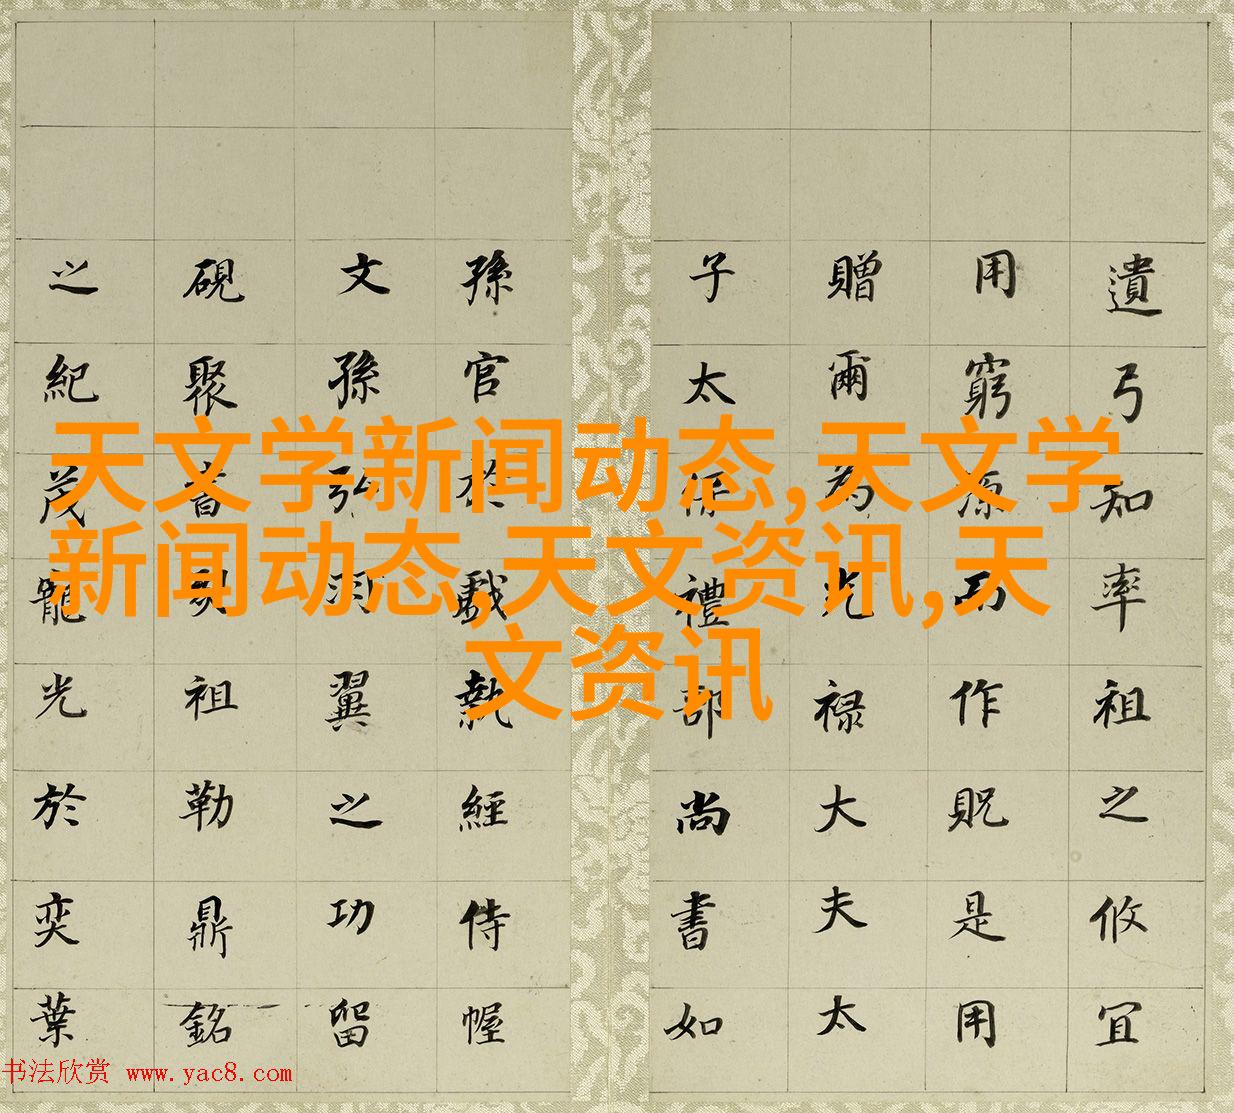 遺弓知率祖之攸宜
用窮源而作貺是用
贈爾為光禄大夫太
子太保禮部尚書如
孫官於戲執經侍幄
文孫引羽翼之功留
硯聚祖勒鼎銘
之紀茂寵光於奕葉
天文学新闻动态,天文学
新闻动态,天文资讯,天
文资讯
书法欣赏 www.yac8.com